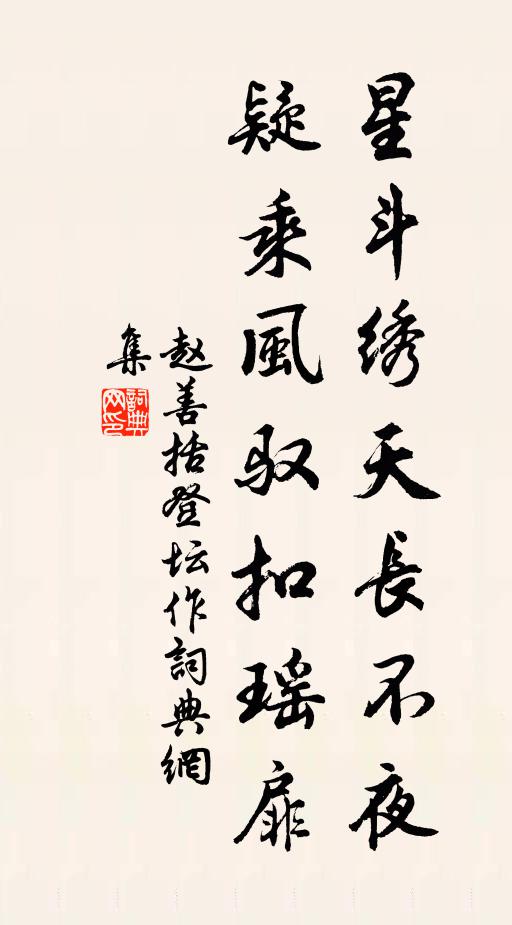 星斗绣天長不夜
疑乘風驭扣瑶扉
赵善括登坛作詞典網
集
詞典网印